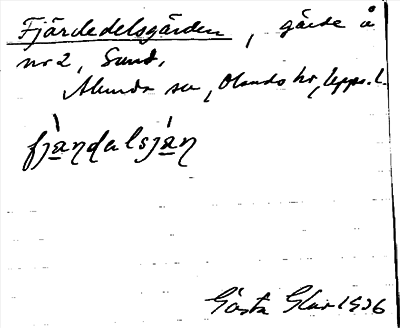 Fjärdedelsgärden, gärde å
nr 2, Sund.
Alunda sn, Olands hr, Upps. l.
fjàṇdalsjáṇ
Gösta Glar 1936